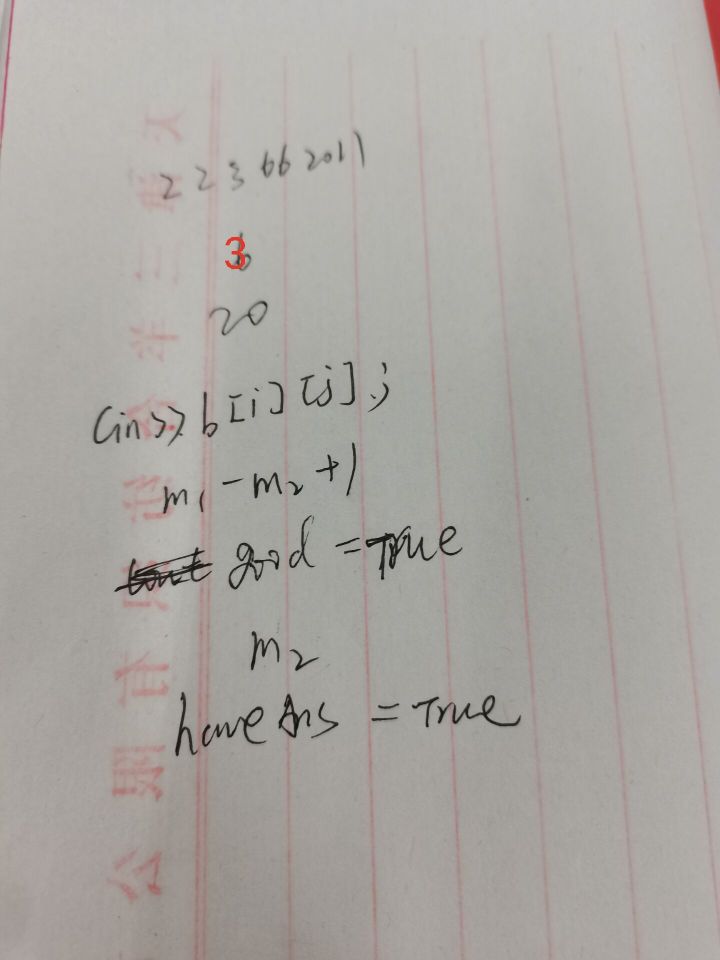 2 2 3 66 2011
3
20
cin>>b[i][j];
m1-m2+1
good=True
m2
haveAns=True